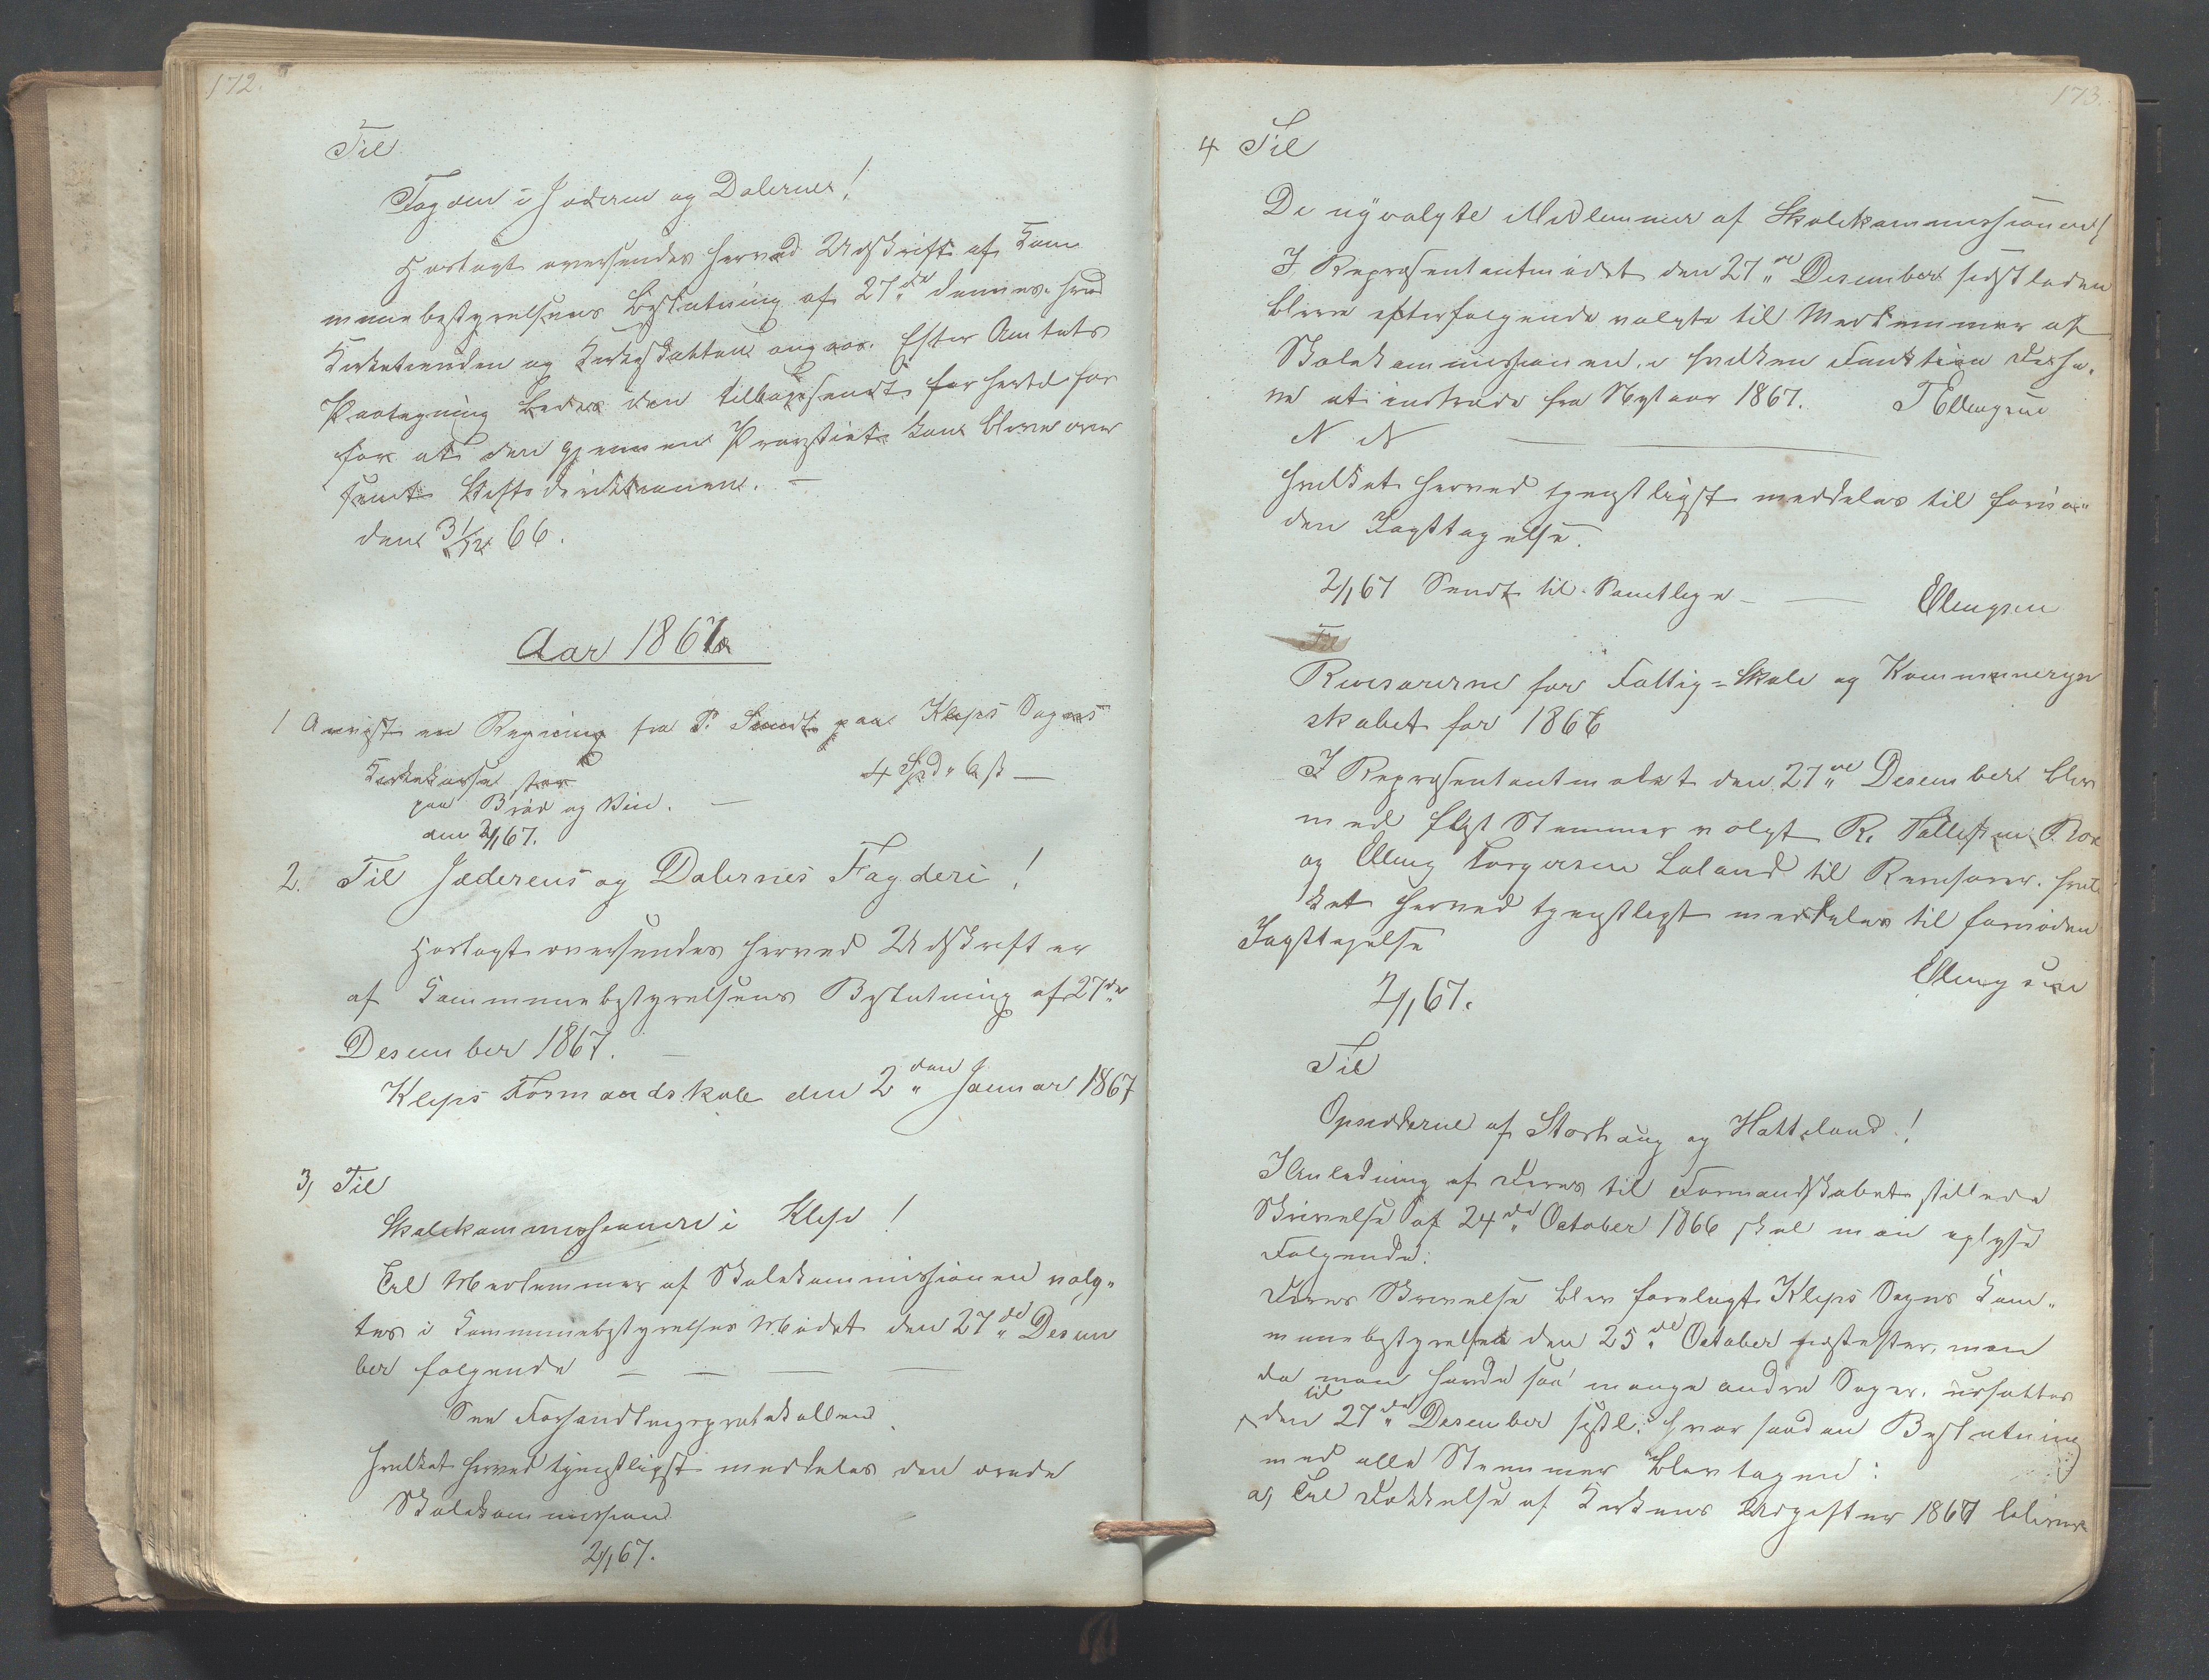 172.
Til
Fogden i Jæderen og Dalerne!
Hoslagt oversendes herved Udskrift af Kom
munebestyrelsens Beslutning af 27de dennes hvad
Kirketienden og Kirkeskatten angaar. Efter Amtets
Paategning bedes den tilbagesendt forhertil for
for at den gjennem Provstiet kan blive over
sendt Stiftsdirektionen. –
den 31/12 66.
Aar 1867
1 Anvist en Regning fra P. Sundt paa Kleps Sogns
Kirkekasse stor 4 Spd " 6 sk –
paa Brød og Vin. –
den 2/1 67.
2. Til Jæderens og Dalernes Fogderi!
Hoslagt oversendes herved Udskrift er
af Kommunebestyrelsens Beslutning af 27de
Desember 1867. –
Kleps Formandskab den 2den Januar 1867
3, Til
Skolekommissionen i Klep!
Til Medlemmer af Skolekommissionen valg„
tes i Kommunebestyrelses Mødet den 27de Desem
ber følgende – – – –
See Forhandlingsprotokollen
hvilket herved tjenstligst meddeles den ærede
Skolekommission
2/1 67.
173.
4 Til
De nyvalgte Medlemmer af Skolekommissionen!
I Repræsentantmødet den 27de Desember sidstleden
bleve efterfølgende valgte til Medlemmer af
Skolekommissionen, i hvilken Funktion De have
at indtræde fra Nytaar 1867. T Ellingsen
N N
hvilket herved tjenstligst meddeles til fornø„
den Iagttagelse.
2/1 67 Sendt til Samtlige – Ellingsen
Til
Revisorerne for Fattig= Skole og Kommuneregn
skabet for 1866
I Repræsentantmødet den 27de Desember blev
med flest Stemmer valgt R. Tollefsen Boe
og Elling Torgersen Laland til Revisorer. hvil
ket herved tjenstligst meddeles til fornøden
Iagttagelse
Ellingsen
2/1 67.
Til
Opsidderne af Storhaug og Hatteland!
I Anledning af Deres til Formandskabet stillede
Skrivelse af 24de October 1866 skal man oplyse
Følgende:
Deres Skrivelse blev forelagt Kleps Sogns Kom„
munebestyrelse den 25de October næstefter, men
da man havde saa mange andre Sager, udsattes
til
den 27de Desember sidstl: hvor saadan Beslutning
med alle Stemmer blev tagen:
a, Til Dækkelse af Kirkens Udgifter 1867 bliver